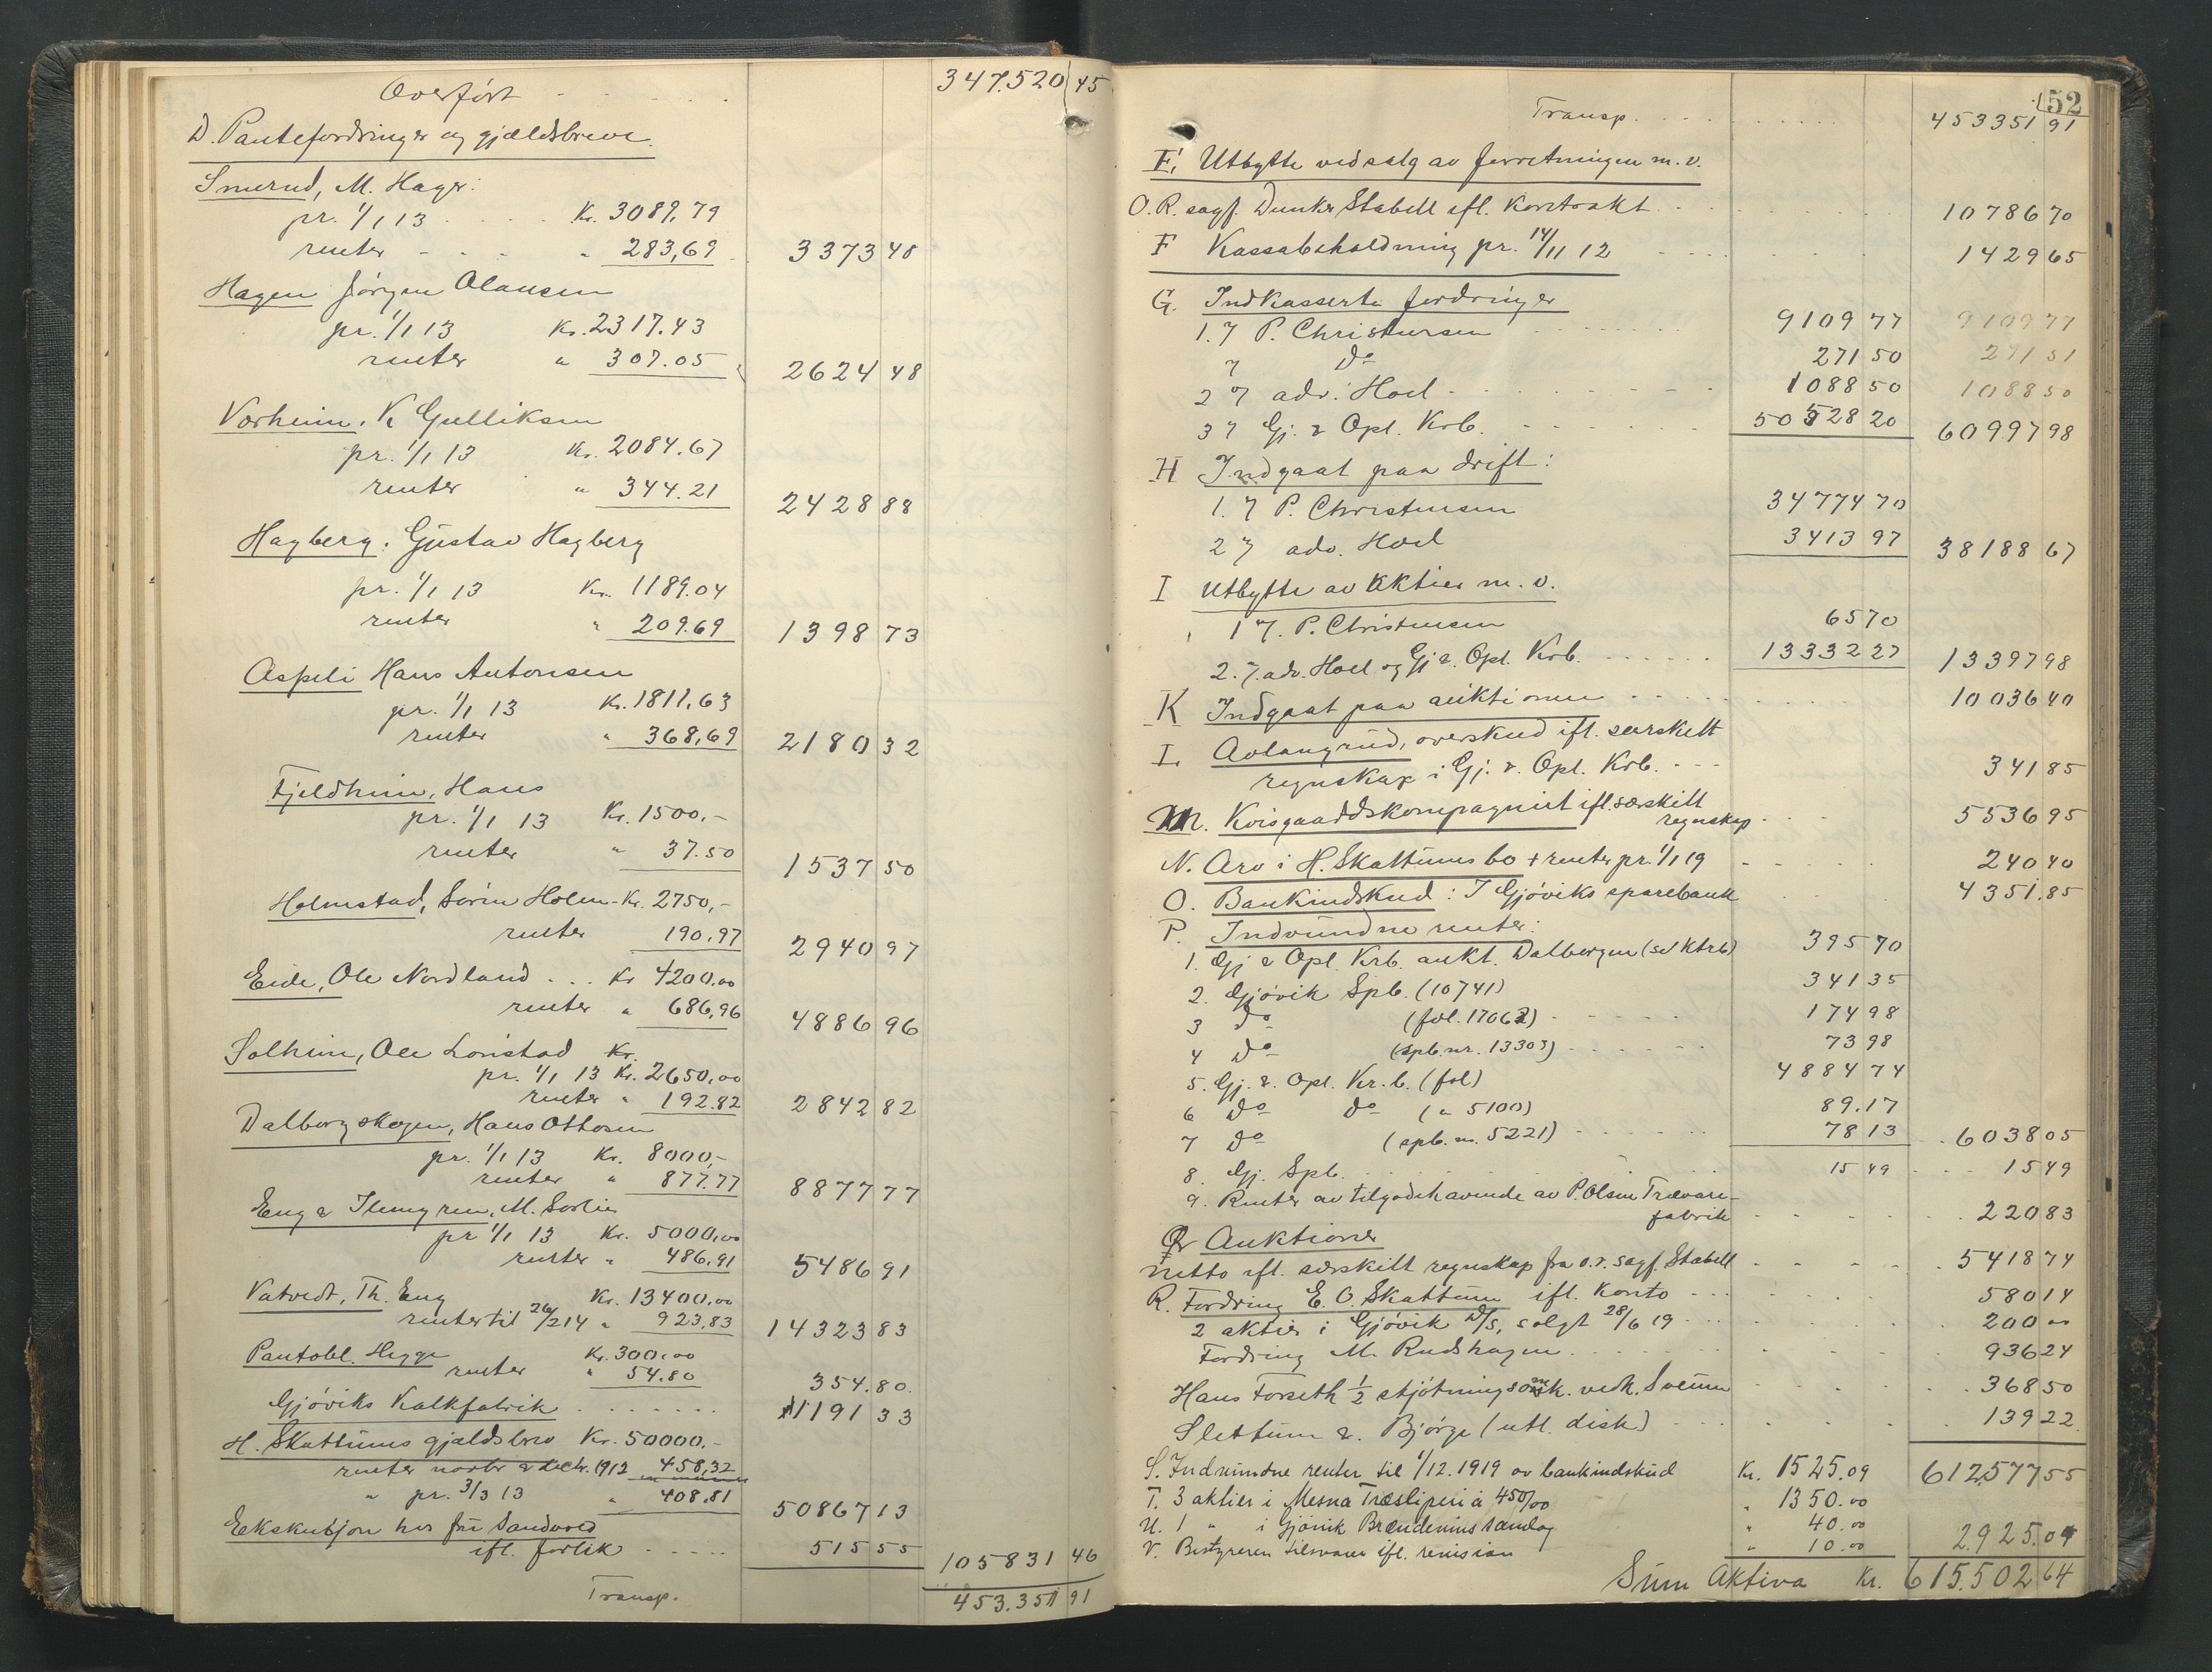 Overført . . . . . . 347.520 45
D. Pantefordringer og gjældsbreve.
Smerud, M. Hager:
pr. 1/1 13 . . . . Kr. 3089,79
renter - - - - " 283,69 3373 48
Hagen Jörgen Olausen
pr. 1/1 13 Kr. 2317.43
renter " 307.05 2624 48
Vorheim. K Gulliksen
pr. 1/1 13 Kr. 2084.67
renter " 344.21 2428 88
Hagberg. Gustav Hagberg
pr. 1/1 13 Kr. 1189.04
renter " 209.69 1398 73
Aspeli Hans Antonsen
pr. 1/1 13 Kr. 1811,63
renter " 368,69 2180 32
Fjeldheim, Hans
pr. 1/1 13 Kr. 1500.-
renter " 37.50 1537 50
Holmstad, Sörin Holm - Kr. 2750,-
renter 190,97 2940 97
Eide, Ole Nordland . . . Kr 4200,00
renter " 686,96 4886 96
Solheim, Ole Lönstad Kr.
pr. 1/1 13 Kr. 2650,00
renter " 192.82 2842 82
Dalborgskogen, Hans Ottosen
pr. 1/1 13 Kr. 8000,-
renter " 877.77 8877 77
Eng & Ilengren, M. Sorlie
pr 1/1 13 Kr. 5000,00
renter " 486,91 5486 91
Vatvedt, Th. Eng Kr. 13400,00
renter til 26/2 14 " 923,83 14323 83
Pantobl. Hegge Kr. 300,00
renter " 54.80 354.80.
Gjöviks Kalkfabrik . . . . . . . 1191 33
H. Skattums gjældsbrev Kr. 50000.-
renter novbr & decbr. 1912 458,32
" pr. 3/3 13 " 408.81 50867 13
Ekskusjon hos fru Sandvold
ifl. forlik - . . . . . 515 55 105831 46
Transp. 453.351 91
52
Transp. . . . . . . . . . 453351 91
E, Utbytte ved salg av forretningen m. v.
O. R. sagf. Dunker Stabell ifl. Kontrakt . . . 10786 70
F Kassabeholdning pr. 14/11 12 . . . . 1429 65
G. Indkasserte fordringer
1. 7 P. Christensen . . . . . . . 9109 77 9109 77
7 Do 271 50 271 51
2 7 adv. Hoel . . . . . . 1088 50 1088 50
3 7 Gj. & Opl. Krb. . . . . . . 50528 20 60997 98
H Indgaat paa drift:
1. 7 P. Christensen 34774 70
2 7 adv. Hoel 3413 97 38188 67
I Utbytte av Aktier m. v.
1 7. P. Christensen 65 70
2. 7. adv. Hoel og Gj & Opl. Krb. . . . . . 13332 27 13397 98
K Indgaat paa auktionen . . . . 10036 40
L Avlangrud, overskud ifl. særskilt
regnskap i Gj. & Opl. Krb. . - - 341 85
M. Kvisgaardskompagniet ifl. særskilt
regnskap . . . . 5536 95
N. Arv i H. Skattums bo + renter pr. 1/1 19 . . . . . 240 40
O. Bankindskud: I Gjöviks sparebank . . . . 4351.85
P. Indvundne renter:
1. Gj & Opl. Krb. aukt. Dalborgen (sd Ktrb) 395 70
2. Gjövik Spb. (10741) 341 35
3 Do (fol. 17062) . . . . . 174 98
4 Do (spb. nr. 13303) . . . . . . 73 98
5. Gj. & Opl. Kr. b. (fol) 4884 74
6 Do Do (" 5100) 89.17
7 Do (spb. nr. 5221) . . . . . . 78 13 . 6038 05
8. Gj. Spb. . . . . . 15 49 . . . 15 49
9. Renter av tilgodehavende av P. Olsen Trævare-
fabrik . . . . . . 220 83
Q Auktioner
netto ifl. særskilt regnskap fra o. r. sagf. Stabell . . . . 5418 74
R. Fordring E. O. Skattum ifl. Konto - . . . . 580 14
2 aktier i Gjövik D/S, solgt 28/6 19 . . . . . 200 00
Fordring M. Rudshagen . . . . . . . 936 24
Hans Forseth 1/2 vedk. Sveum . . . . . 368 50
Slettum & Björge (utl. disk) . . . . . . 139 22
S. Indvundne renter til 1/12. 1919 av bankindskud Kr. 1525.09 612577 55
T. 3 aktier i Mesna Træsliperi à 450/00 " 1350.00
U. 1 " i Gjövik Brændeviinssamlag " 40.00
V. Bestyreren tilsvarer ifl. revision " 10.00 2.925.09
Sum Aktiva Kr. 615.502 64